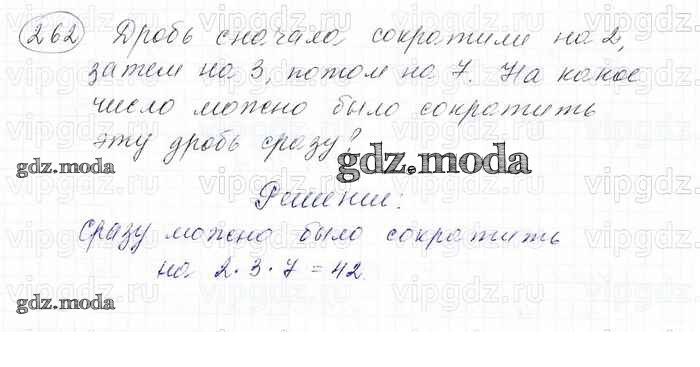 262 Дробь сначала сократили на 2,
затем на 3, потом на 7. На какое
число можно было сократить
эту дробь сразу?
gdz.moda
gdz.moda
Решение:
Сразу можно было сократить
на 2·3·7=42.
gdz.moda
vipgdz.ru